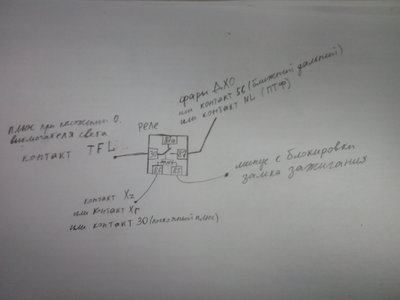 фары ДХО
или контакт 56 (ближний дальний)
или контакт NL (ПТФ)
плюс при положении 0.
выключателя света
контакт TFL
реле
30
87
86
85
минус с блокировки
замка зажигания
контакт Xz
или контакт Xr
или контакт 30 (постоянный плюс)